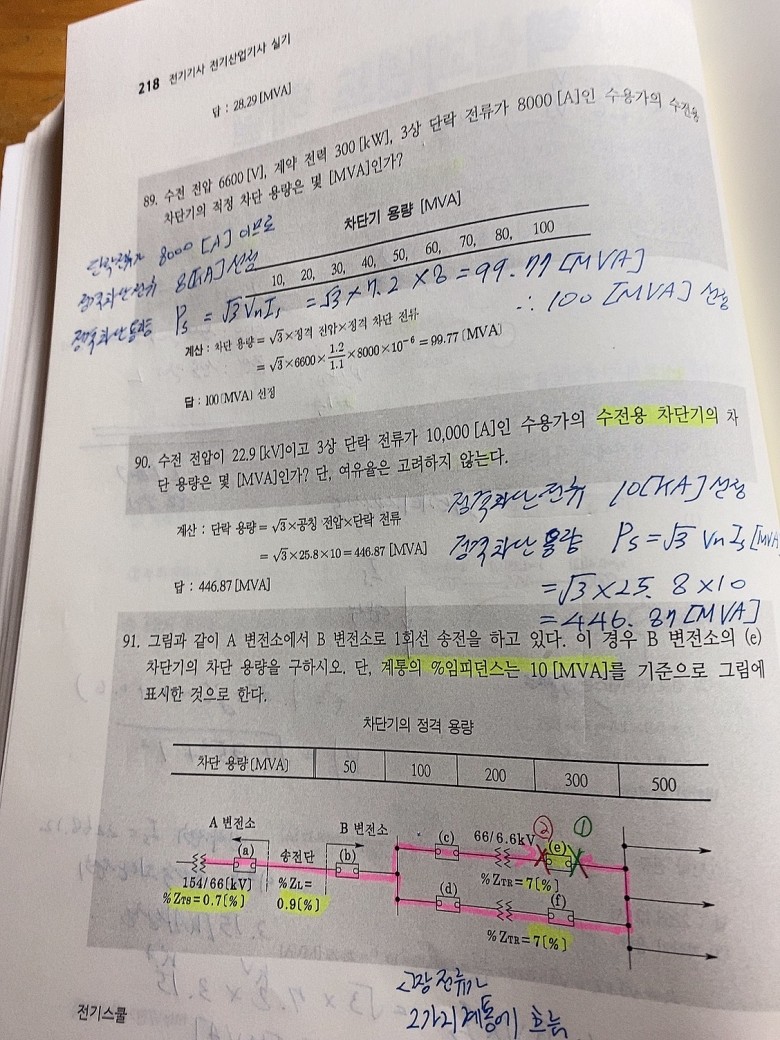 218 전기기사 전기산업기사 실기
답 : 28.29 [MVA]
89. 수전 전압 6600 [V], 계약 전력 300 [kW], 3상 단락 전류가 8000 [A]인 수용가의 수전용
차단기의 적정 차단 용량은 몇 [MVA]인가?
차단기 용량 [MVA]
10, 20, 30, 40, 50, 60, 70, 80, 100
단락전류가 8000 [A] 이므로
정격차단전류 8[kA] 선정
정격차단용량 Ps = √3 Vn Is = √3 × 7.2 × 8 = 99.77 [MVA]
∴ 100 [MVA] 선정
계산 : 차단 용량 = √3 × 정격 전압 × 정격 차단 전류
= √3 × 6600 × 1.2/1.1 × 8000 × 10⁻⁶ = 99.77 [MVA]
답 : 100 [MVA] 선정
90. 수전 전압이 22.9 [kV]이고 3상 단락 전류가 10,000 [A]인 수용가의 수전용 차단기의 차
단 용량은 몇 [MVA]인가? 단, 여유율은 고려하지 않는다.
정격차단전류 10[kA] 선정
계산 : 단락 용량 = √3 × 공칭 전압 × 단락 전류
정격차단용량 Ps = √3 Vn Is [MVA
= √3 × 25.8 × 10 = 446.87 [MVA]
= √3 × 25.8 × 10
답 : 446.87 [MVA]
= 446.87 [MVA]
91. 그림과 같이 A 변전소에서 B 변전소로 1회선 송전을 하고 있다. 이 경우 B 변전소의 (e)
차단기의 차단 용량을 구하시오. 단, 계통의 %임피던스는 10 [MVA]를 기준으로 그림에
표시한 것으로 한다.
차단기의 정격 용량
차단 용량 [MVA] 50 100 200 300 500
A 변전소
B 변전소
(a)
송전단
(b)
(c)
66/6.6kV
②
①
(e)
154/66 [kV]
%ZL=
%ZTR = 7 [%]
%ZTS = 0.7 [%]
0.9 [%]
(d)
(f)
%ZTR = 7 [%]
고장전류가
2가지 계통에 흐름
전기스쿨